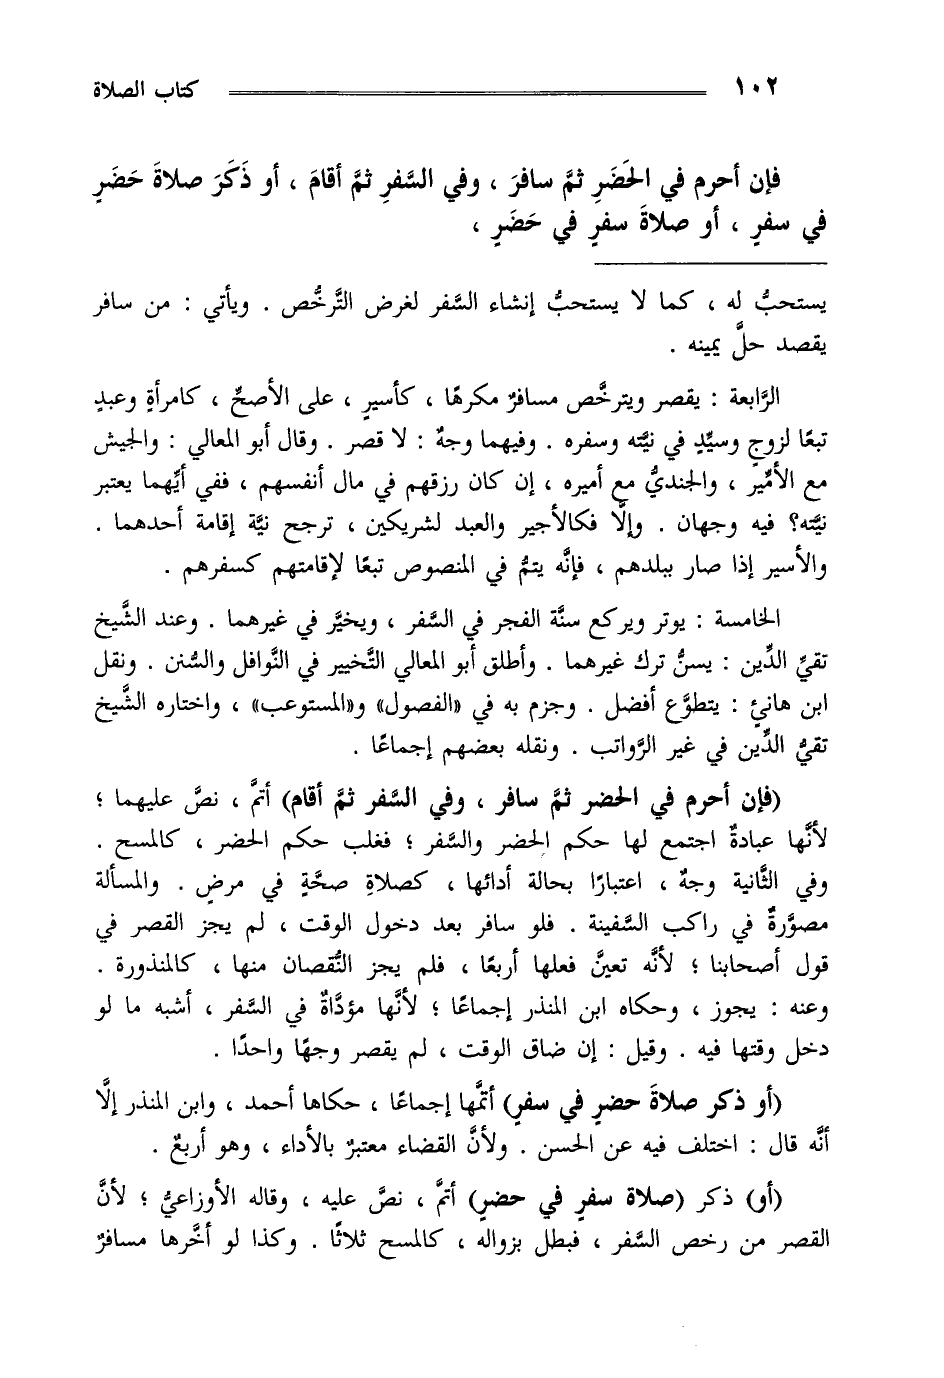 ١٠٢ كتاب الصلاة
فإن أحرم في الحَضَرِ ثمَّ سافرَ ، وفي السَّفرِ ثمَّ أقامَ ، أو ذَكَرَ صلاةَ حَضَرٍ
في سفرٍ ، أو صلاةَ سفرٍ في حَضَرٍ ،
يستحبُّ له ، كما لا يستحبُّ إنشاء السَّفر لغرض التَّرخُّص . ويأتي : من سافر
يقصد حلَّ يمينه .
الرَّابعة : يقصر ويترخَّص مسافرٌ مكرهًا ، كأسيرٍ ، على الأصحِّ ، كامرأةٍ وعبدٍ
تبعًا لزوجٍ وسيِّدٍ في نيَّته وسفره . وفيهما وجهٌ : لا قصر . وقال أبو المعالي : والجيش
مع الأمير ، والجنديُّ مع أميره ، إن كان رزقهم في مال أنفسهم ، ففي أيِّهما يعتبر
نيَّته؟ فيه وجهان . وإلَّا فكالأجير والعبد لشريكين ، ترجح نيَّة إقامة أحدهما .
والأسير إذا صار ببلدهم ، فإنَّه يتمُّ في المنصوص تبعًا لإقامتهم كسفرهم .
الخامسة : يوتر ويركع سنَّة الفجر في السَّفر ، ويخيَّر في غيرهما . وعند الشَّيخ
تقيِّ الدِّين : يسنُّ ترك غيرهما . وأطلق أبو المعالي التَّخيير في النَّوافل والسُّنن . ونقل
ابن هانئٍ : يتطوَّع أفضل . وجزم به في «الفصول» و«المستوعب» ، واختاره الشَّيخ
تقيُّ الدِّين في غير الرَّواتب . ونقله بعضهم إجماعًا .
(فإن أحرم في الحضر ثمَّ سافر ، وفي السَّفر ثمَّ أقام) أتمَّ ، نصَّ عليهما ؛
لأنَّها عبادةٌ اجتمع لها حكم الحضر والسَّفر ؛ فغلب حكم الحضر ، كالمسح .
وفي الثَّانية وجهٌ ، اعتبارًا بحالة أدائها ، كصلاةِ صحَّةٍ في مرضٍ . والمسألة
مصوَّرةٌ في راكب السَّفينة . فلو سافر بعد دخول الوقت ، لم يجز القصر في
قول أصحابنا ؛ لأنَّه تعيَّن فعلها أربعًا ، فلم يجز النُّقصان منها ، كالمنذورة .
وعنه : يجوز ، وحكاه ابن المنذر إجماعًا ؛ لأنَّها مؤدَّاةٌ في السَّفر ، أشبه ما لو
دخل وقتها فيه . وقيل : إن ضاق الوقت ، لم يقصر وجهًا واحدًا .
(أو ذكر صلاةَ حضرٍ في سفرٍ) أتمَّها إجماعًا ، حكاها أحمد ، وابن المنذر إلَّا
أنَّه قال : اختلف فيه عن الحسن . ولأنَّ القضاء معتبرٌ بالأداء ، وهو أربعٌ .
(أو) ذكر (صلاة سفرٍ في حضرٍ) أتمَّ ، نصَّ عليه ، وقاله الأوزاعيُّ ؛ لأنَّ
القصر من رخص السَّفر ، فبطل بزواله ، كالمسح ثلاثًا . وكذا لو أخَّرها مسافرٌ